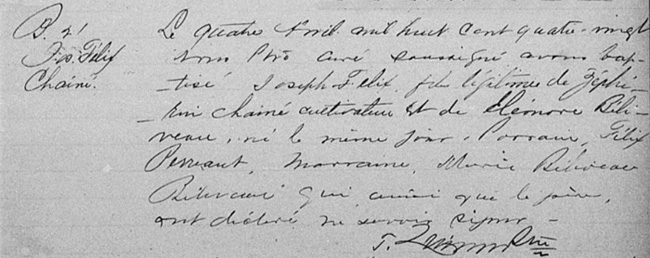 B. 21
Jos. Félix
Chainé.
Le quatre Avril mil huit cent quatre-vingt
nous Ptre curé soussigné avons bap-
-tisé Joseph Felix, fils légitime de Zéphi-
-rin Chainé cultivateur et de Eléonore Béli-
veau, né le même jour. Parrain, Félix
Perreault, Marraine, Marie Béliveau
qui ainsi que le père,
ont déclaré ne savoir signer -
T. Ptre